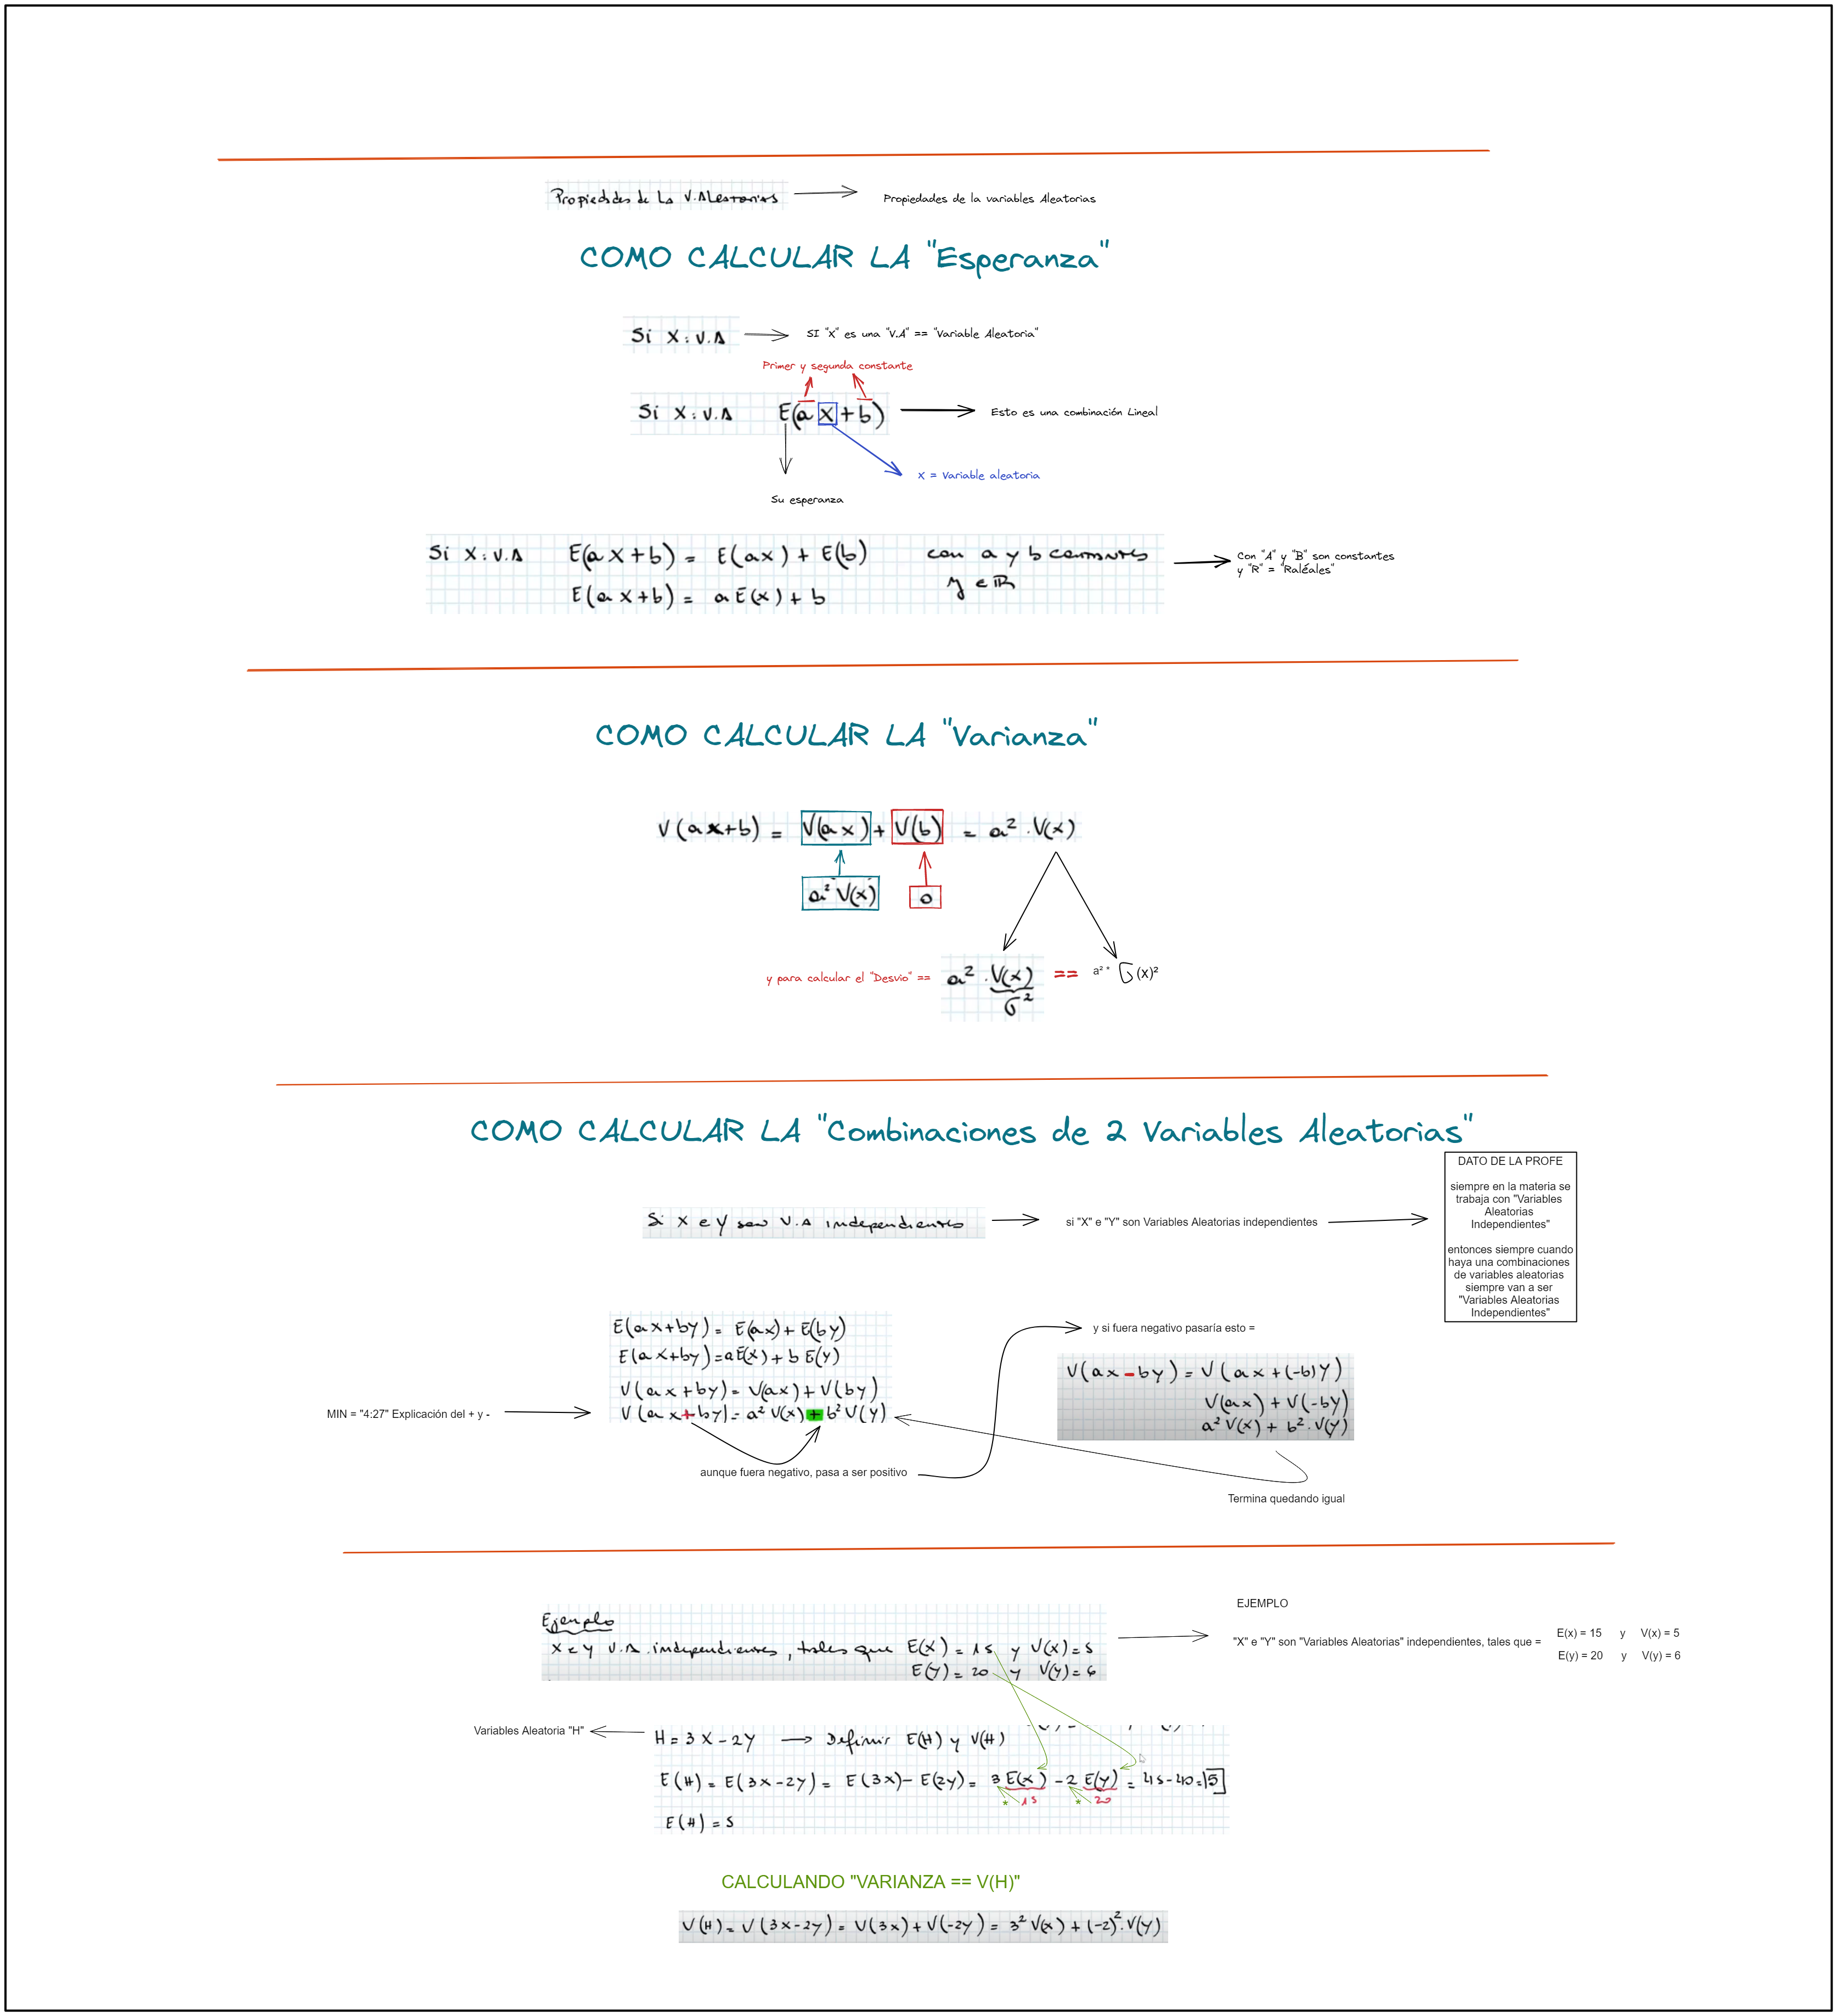 Propiedades de la V.Aleatorias
Propiedades de la variables Aleatorias
COMO CALCULAR LA "Esperanza"
Si X: V.A
SI "X" es una "V.A" == "Variable Aleatoria"
Primer y segunda constante
Si X: V.A E(aX+b)
Esto es una combinación Lineal
X = Variable aleatoria
Su esperanza
Si X: V.A E(aX+b) = E(ax) + E(b) con a y b constantes
E(ax+b) = aE(x) + b y ∈ IR
Con "A" y "B" son constantes
y "R" = "Raléales"
COMO CALCULAR LA "Varianza"
V(ax+b) = V(ax) + V(b) = a² . V(x)
a² V(x)
0
y para calcular el "Desvio" ==
a² . V(x)
σ²
==
a² * σ(x)²
COMO CALCULAR LA "Combinaciones de 2 Variables Aleatorias"
DATO DE LA PROFE
siempre en la materia se
trabaja con "Variables
Aleatorias
Independientes"
entonces siempre cuando
haya una combinaciones
de variables aleatorias
siempre van a ser
"Variables Aleatorias
Independientes"
Si X e Y son V.A independientes
si "X" e "Y" son Variables Aleatorias independientes
E(ax+by) = E(ax) + E(by)
E(ax+by) = aE(x) + b E(y)
V(ax+by) = V(ax) + V(by)
V(ax+by) = a² V(x) + b² V(y)
MIN = "4:27" Explicación del + y -
aunque fuera negativo, pasa a ser positivo
y si fuera negativo pasaría esto =
V(ax-by) = V(ax+(-b)Y)
V(ax) + V(-by)
a² V(x) + b² . V(y)
Termina quedando igual
Ejemplo
X e Y V.A. independientes, tales que E(x) = 15 y V(x) = 5
E(y) = 20 y V(y) = 6
EJEMPLO
"X" e "Y" son "Variables Aleatorias" independientes, tales que =
E(x) = 15 y V(x) = 5
E(y) = 20 y V(y) = 6
Variables Aleatoria "H"
H = 3X - 2Y → Definir E(H) y V(H)
E(H) = E(3x-2y) = E(3x) - E(2y) = 3 E(x) - 2 E(y) = 45-40 = 5
* 15 * 20
E(H) = 5
CALCULANDO "VARIANZA == V(H)"
V(H) = V(3x-2y) = V(3x) + V(-2y) = 3² V(x) + (-2)² . V(y)